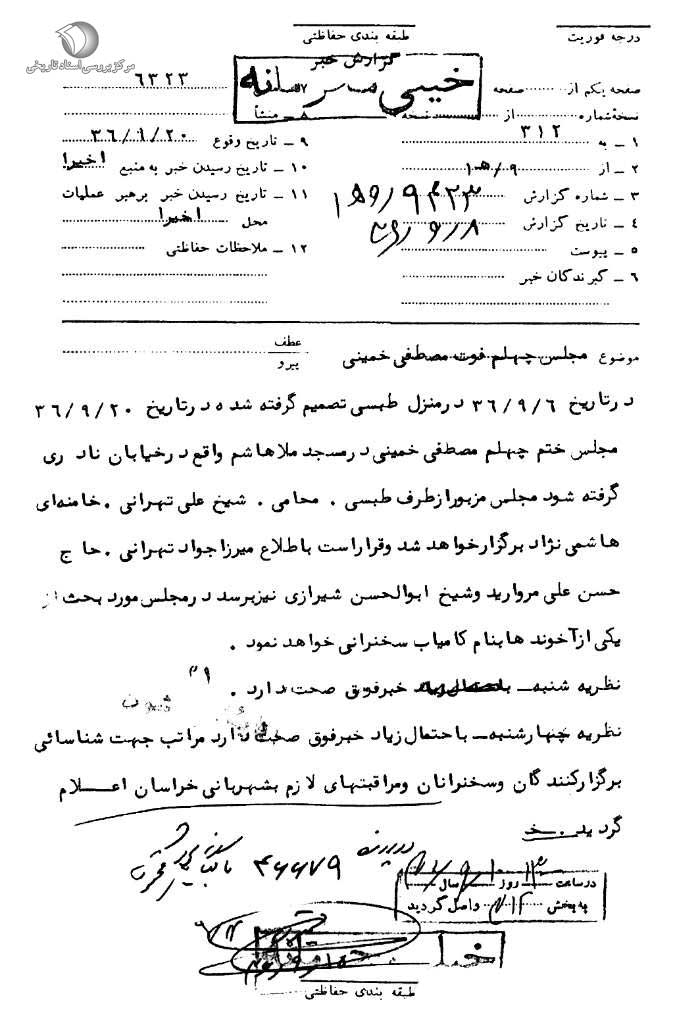 مرکز بررسی اسناد تاریخی
طبقه بندی حفاظتی
درجه فوریت
گزارش خبر
خیلی محرمانه
صفحه یکم از صفحه
۶۳۲۳
نسخه شماره از نسخه
۸ ــ منشأ
۱ ــ به ۳۱۲
۲ ــ از ۹/ﻫ ۱
۳ ــ شماره گزارش
۴ ــ تاریخ گزارش
۵ ــ پیوست
۶ ــ گیرندگان خبر
۹ ــ تاریخ وقوع ۳۶/۹/۲۰
۱۰ ــ تاریخ رسیدن خبر به منبع اخیرا
۱۱ ــ تاریخ رسیدن خبر برهبر عملیات
محل اخیرا
۱۲ ــ ملاحظات حفاظتی
موضوع مجلس چهلم فوت مصطفی خمینی
عطف
پیرو
درتاریخ ۳۶/۹/۶ درمنزل طبسی تصمیم گرفته شده درتاریخ ۳۶/۹/۲۰
مجلس ختم چهلم مصطفی خمینی درمسجد ملاهاشم واقع درخیابان نادری
گرفته شود مجلس مزبورازطرف طبسی . محامی . شیخ علی تهرانی . خامنه‌ای
هاشمی نژاد برگزارخواهد شد وقراراست باطلاع میرزا جواد تهرانی . حاج
حسن علی مروارید وشیخ ابوالحسن شیرازی نیزبرسد درمجلس مورد بحث از
یکی ازآخوند ها بنام کامیاب سخنرانی خواهد نمود .
نظریه شنبه ــ باحتمال زیاد خبرفوق صحت دارد .
نظریه چهارشنبه ــ باحتمال زیاد خبرفوق صحت دارد مراتب جهت شناسائی
برگزارکنند گان وسخنرانان ومراقبتهای لازم بشهربانی خراسان اعــلام
گردید . خـ
درساعت روز سال
به بخش ۳۱۲ واصل گردید
طبقه بندی حفاظتی